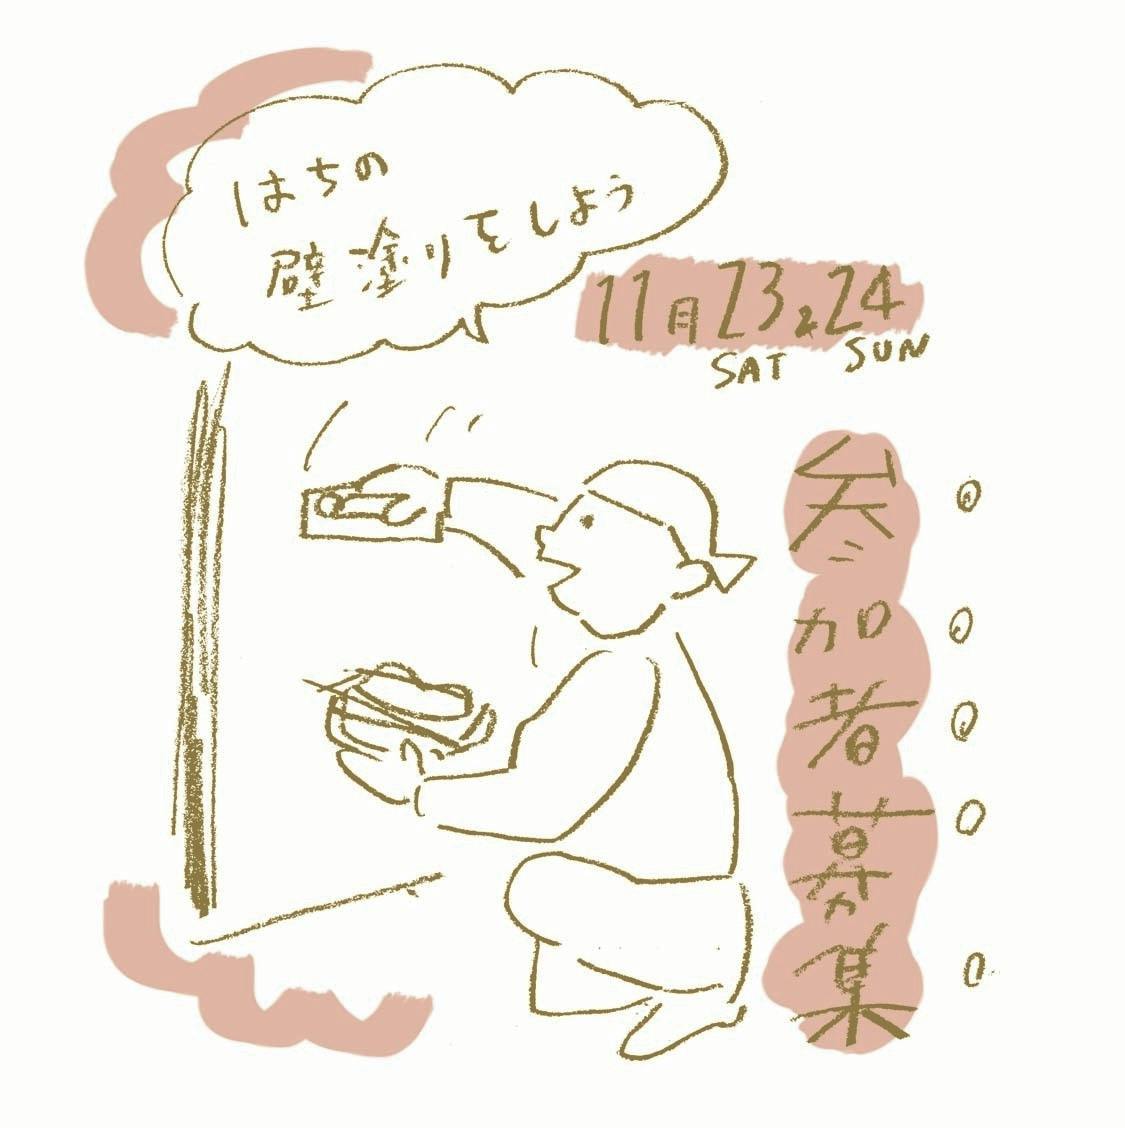 はちの
壁塗りをしよう
11月23&24
SAT SUN
参加者募集